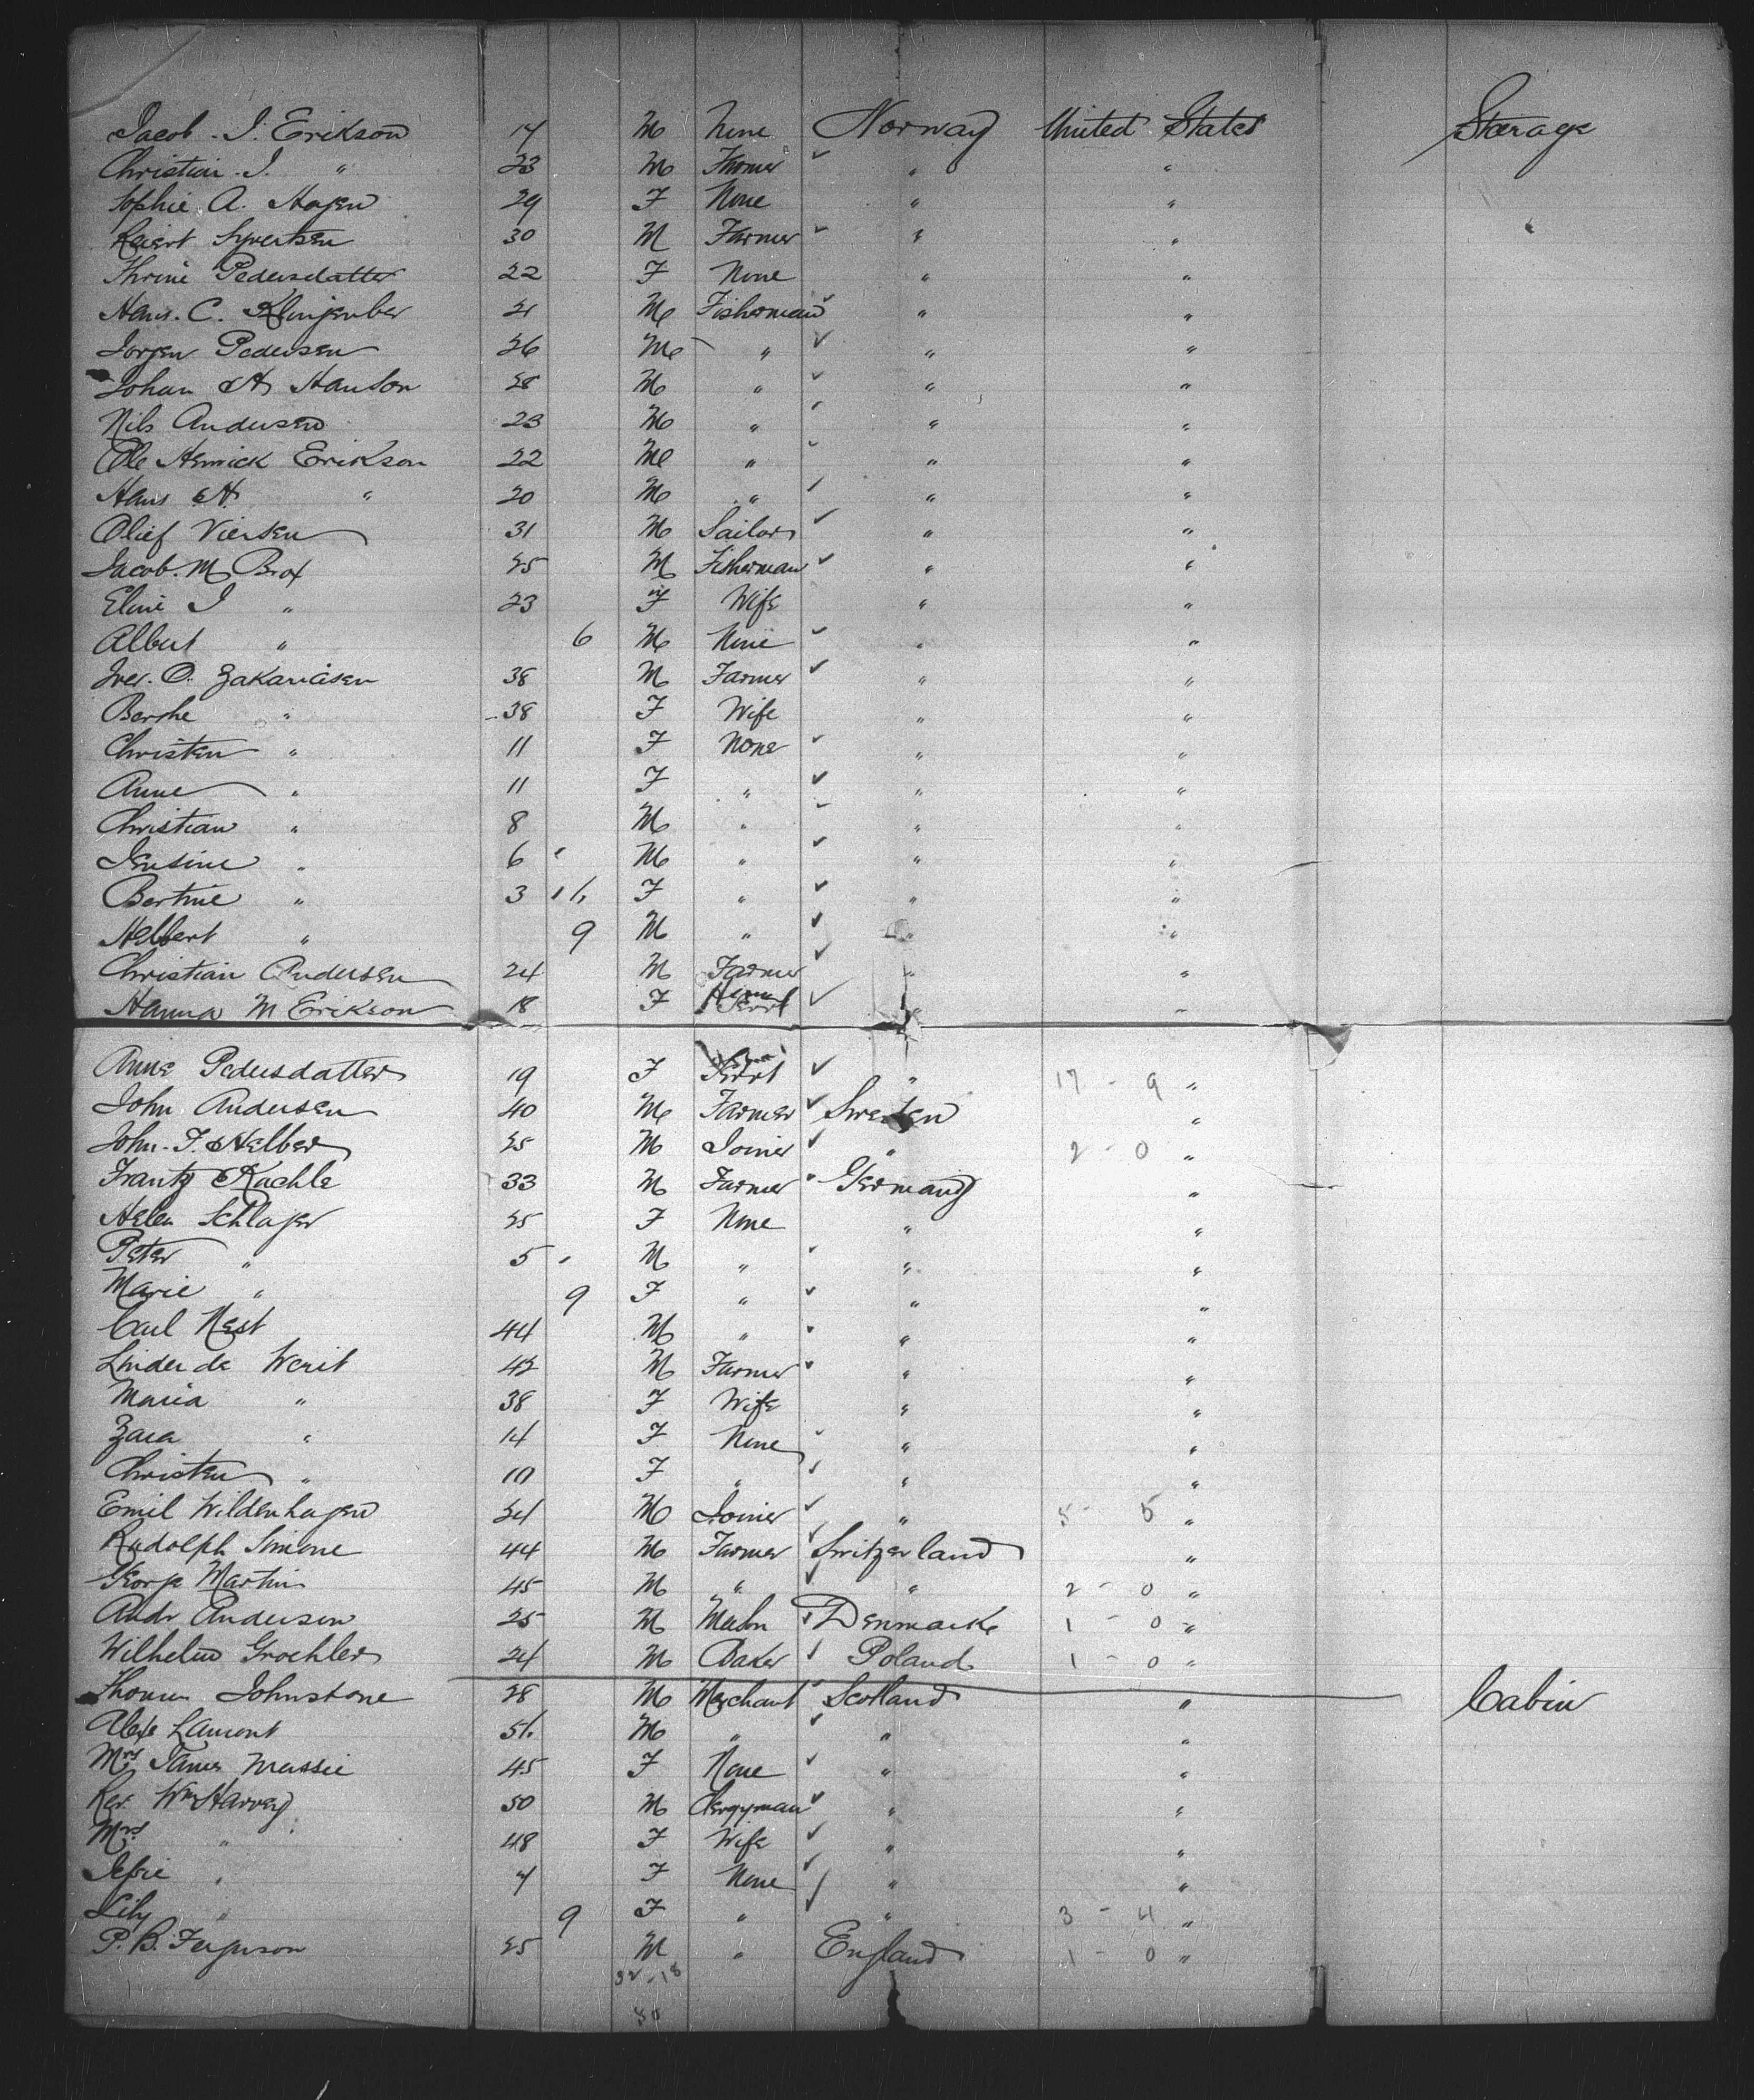 Jacob. I. Erikson 17 M None Norway United States Steerage
Christian. I. " 23 M Farmer " "
Sophie A. Hagen 29 F None " "
Reiert Syvertsen 30 M Farmer " "
Thrine Pedersdatter 22 F None " "
Hans. C. Klingenber 21 M Fisherman " "
Jorgen Pedersen 26 M " " "
Johan A Hanson 28 M " " "
Nils Andersen 23 M " " "
Ole Henrick Erikson 22 M " " "
Hans A. " 20 M " " "
Olief Viersen 31 M Sailor " "
Jacob. M Brox 25 M Fisherman " "
Eline I " 23 F Wife " "
Albert " 6 M None " "
Iver. O. Zakariasen 38 M Farmer " "
Berthe " 38 F Wife " "
Christen " 11 F None " "
Anne " 11 F " " "
Christian " 8 M " " "
Jensine " 6 M " " "
Bertine " 3 F " " "
Helbert " 9 M " " "
Christian Andersen 24 M Farmer " "
Hanna M Erikson 18 F " "
Anne Pedersdatter 19 F " 17 - 9 "
John Andersen 40 M Farmer Sweden "
John. F. Helber 25 M Joiner " 2 - 0 "
Frantz Kachle 33 M Farmer Germany "
Helen Schlager 25 F None " "
Peter " 5 M " " "
Marie " 9 F " " "
Carl Nest 44 M " " "
Linder de Werit 42 M Farmer " "
Maria " 38 F Wife " "
Zara " 14 F None " "
Christen " 10 F " " "
Emil Wildenhagen 24 M Joiner " 5 - 5 "
Rudolph Simone 44 M Farmer Switzerland "
George Martin 45 M " " 2 - 0 "
Andr Andersen 25 M Mason Denmark 1 - 0 "
Wilhelm Groehler 24 M Baker Poland 1 - 0 "
Thomas Johnstone 28 M Merchant Scotland " Cabin
Alex Lamont 56 M " " "
Mrs James Massie 45 F None " "
Rev. Wm Harvey 50 M Clergyman " "
Mrs " 48 F Wife " "
Jessie " 7 F None " "
Lily " 9 F " " 3 - 4 "
P. B. Ferguson 25 M " England 1 - 0 "
32 - 18
50